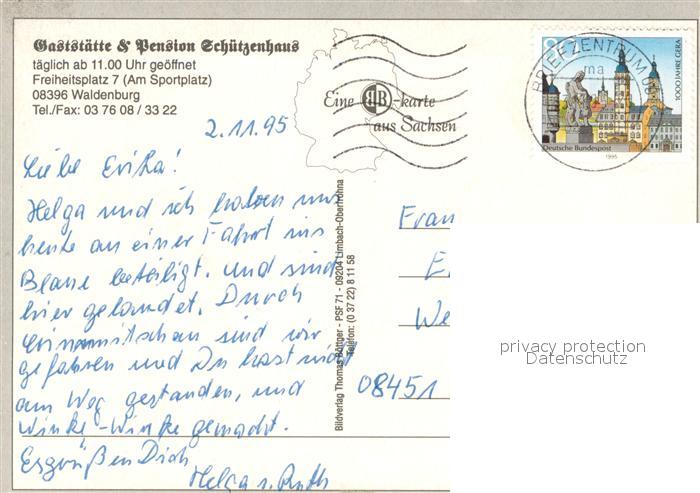 Gaststätte & Pension Schützenhaus
täglich ab 11.00 Uhr geöffnet
Freiheitsplatz 7 (Am Sportplatz)
08396 Waldenburg
Tel./Fax: 03 76 08 / 33 22
Eine BB-karte
aus Sachsen
BRIEFZENTRUM
ma
80
1000 JAHRE GERA
Deutsche Bundespost
1995
2.11.95
Liebe Erika!
Helga und ich haben uns
heute an einer Fahrt ins
Blaue beteiligt. und sind
hier gelandet. Durch
Crimmitschau sind wir
gefahren und Du hast nicht
am Weg gestanden, und
Winke-Winke gemacht.
Es grüßen Dich
Helga u. Ruth
Bildverlag Thomas Böttger - PSF 71 - 09204 Limbach-Oberfrohna
Telefon: (0 37 22) 8 11 58
Frau
E
We
08451
privacy protection
Datenschutz